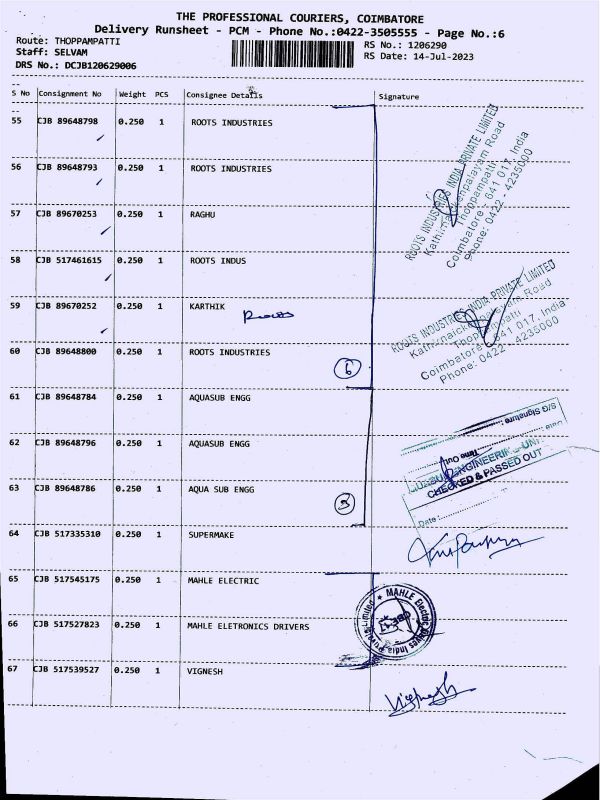 THE PROFESSIONAL COURIERS, COIMBATORE
Delivery Runsheet - PCM - Phone No.:0422-3505555 - Page No.:6
Route: THOPPAMPATTI
Staff: SELVAM
DRS No.: DCJB120629006
RS No.: 1206290
RS Date: 14-Jul-2023
S No Consignment No Weight PCS Consignee Details Signature
55 CJB 89648798 0.250 1 ROOTS INDUSTRIES
56 CJB 89648793 0.250 1 ROOTS INDUSTRIES
57 CJB 89670253 0.250 1 RAGHU
58 CJB 517461615 0.250 1 ROOTS INDUS
59 CJB 89670252 0.250 1 KARTHIK
Roots
60 CJB 89648800 0.250 1 ROOTS INDUSTRIES
6
61 CJB 89648784 0.250 1 AQUASUB ENGG
62 CJB 89648796 0.250 1 AQUASUB ENGG
63 CJB 89648786 0.250 1 AQUA SUB ENGG
3
64 CJB 517335310 0.250 1 SUPERMAKE
65 CJB 517545175 0.250 1 MAHLE ELECTRIC
66 CJB 517527823 0.250 1 MAHLE ELETRONICS DRIVERS
67 CJB 517539527 0.250 1 VIGNESH
ROOTS INDUSTRIES INDIA PRIVATE LIMITED
Thoppampatti,
Coimbatore - 641 017, India
Phone: 0422 - 4235000
ROOTS INDUSTRIES INDIA PRIVATE LIMITED
Coimbatore - 641 017, India
Phone: 0422 - 4235000
S/G Signature :
Time Out
CHECKED & PASSED OUT
Date :
MAHLE Electric Drives India Private Limited
Vignesh